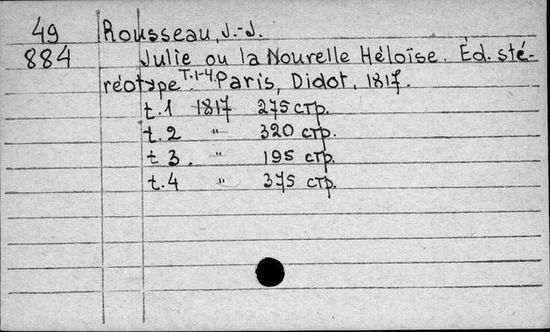 49 Rousseau, J.-J.
884 Julie ou la Nourelle Héloïse. Éd. sté-
réotype. T.1-4. Paris, Didot, 1817.
t.1 1817 275 стр.
t.2 " 320 стр.
t 3. " 195 стр.
t.4 " 375 стр.